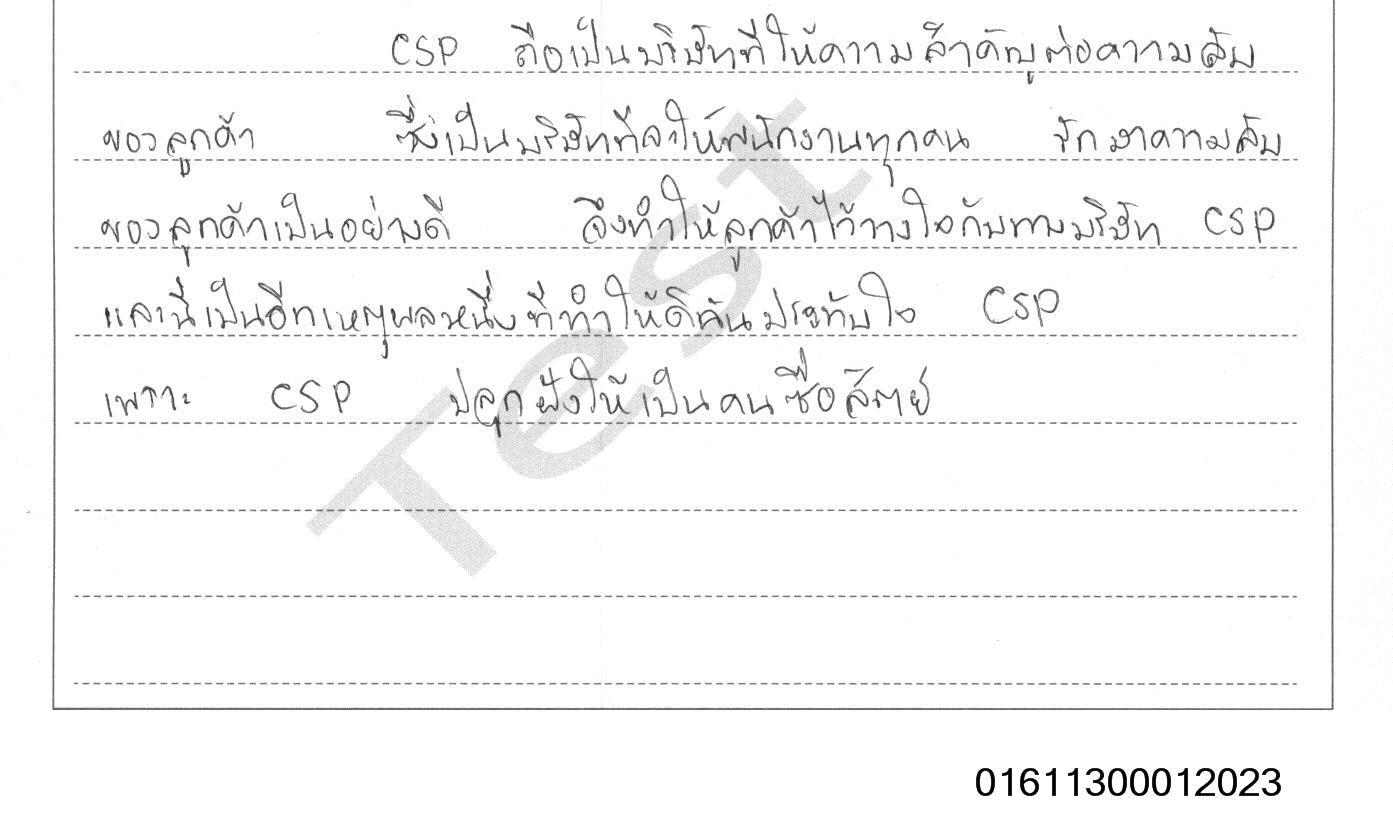 CSP ถือเป็นบริษัทที่ให้ความสำคัญต่อความลับ
ของลูกค้า ซึ่งเป็นบริษัทที่จะให้พนักงานทุกคน รักษาความลับ
ของลูกค้าเป็นอย่างดี จึงทำให้ลูกค้าไว้วางใจกับทางบริษัท CSP
และนี่เป็นอีกเหตุผลหนึ่งที่ทำให้ดิฉันประทับใจ CSP
เพราะ CSP ปลูกฝังให้เป็นคนซื่อสัตย์
Test
01611300012023